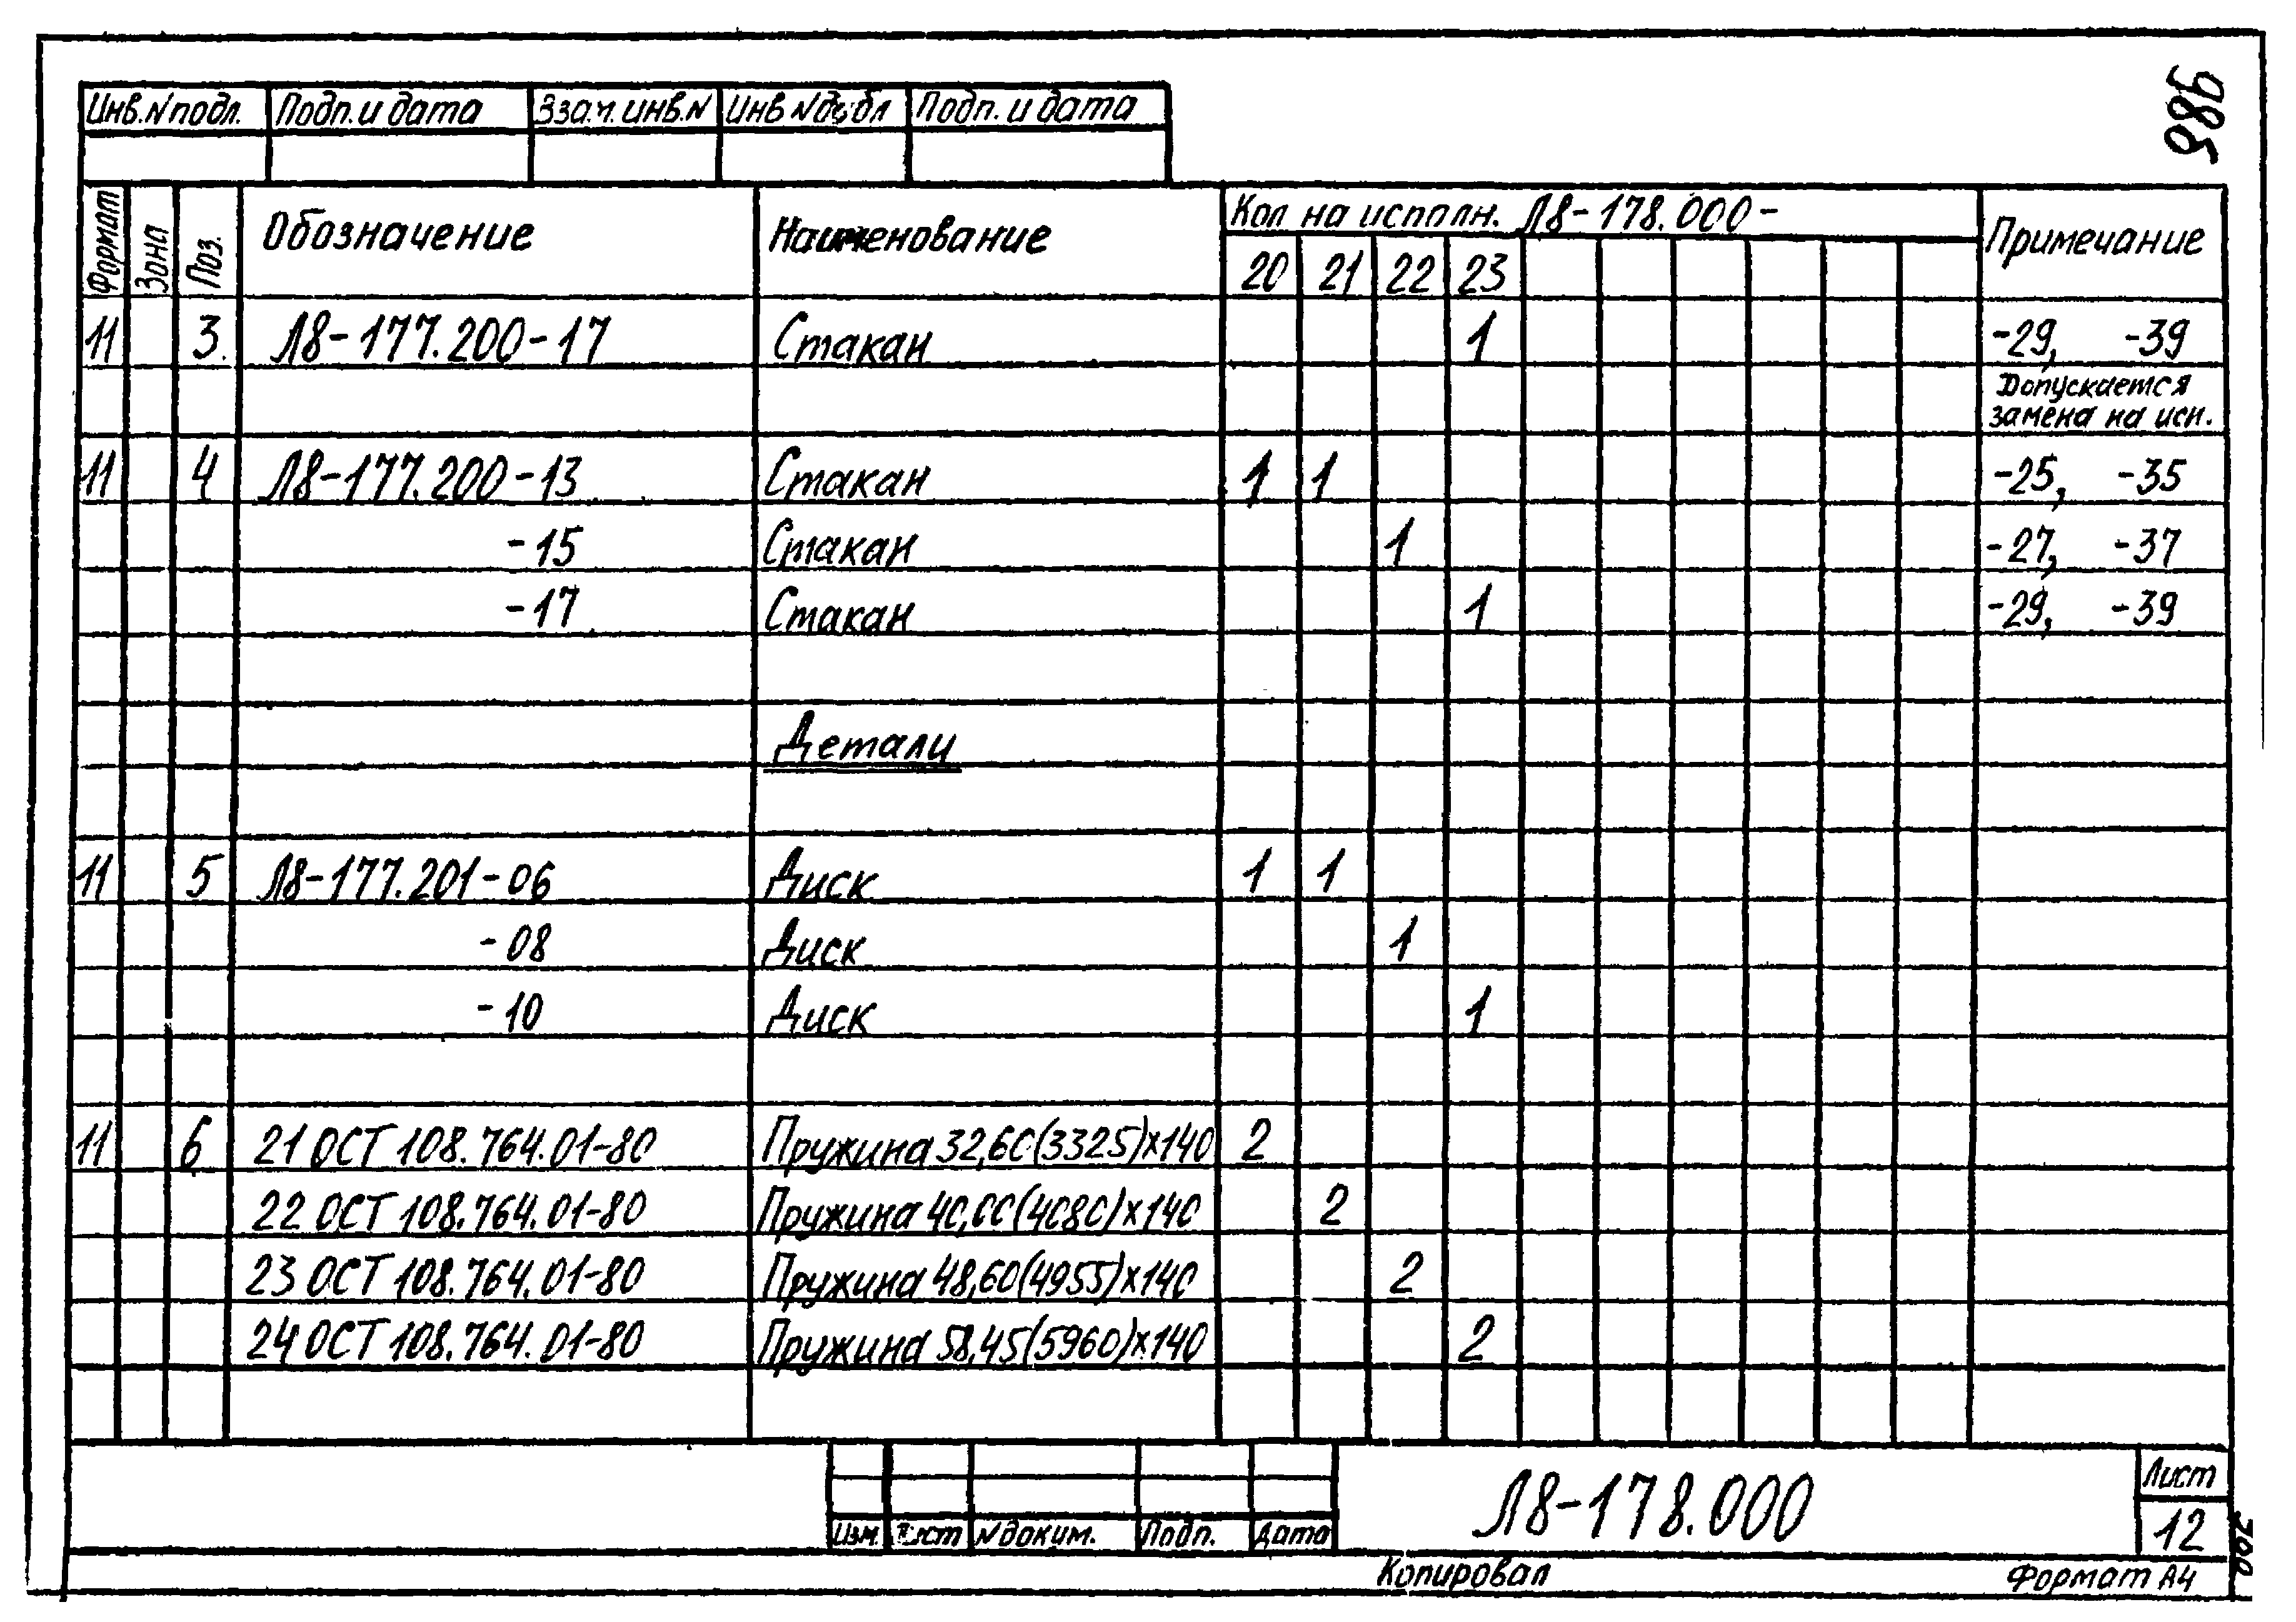 986
Инв.N подл. Подп. и дата Взам. инв.N Инв N дубл Подп. и дата
Формат Зона Поз. Обозначение Наименование Кол на исполн. Л8-178.000- Примечание
20 21 22 23
11 3. Л8-177.200-17 Стакан 1 -29, -39
Допускается
замена на исп.
11 4 Л8-177.200-13 Стакан 1 1 -25, -35
-15 Стакан 1 -27, -37
-17 Стакан 1 -29, -39
Детали
11 5 Л8-177.201-06 Диск 1 1
-08 Диск 1
-10 Диск 1
11 6 21 ОСТ 108.764.01-80 Пружина 32,60(3325)х140 2
22 ОСТ 108.764.01-80 Пружина 40,00(4080)х140 2
23 ОСТ 108.764.01-80 Пружина 48,60(4955)х140 2
24 ОСТ 108.764.01-80 Пружина 58,45(5960)х140 2
Изм. Лист N доким. Подп. Дата
Л8-178.000
Лист
12
Копировал Формат А4